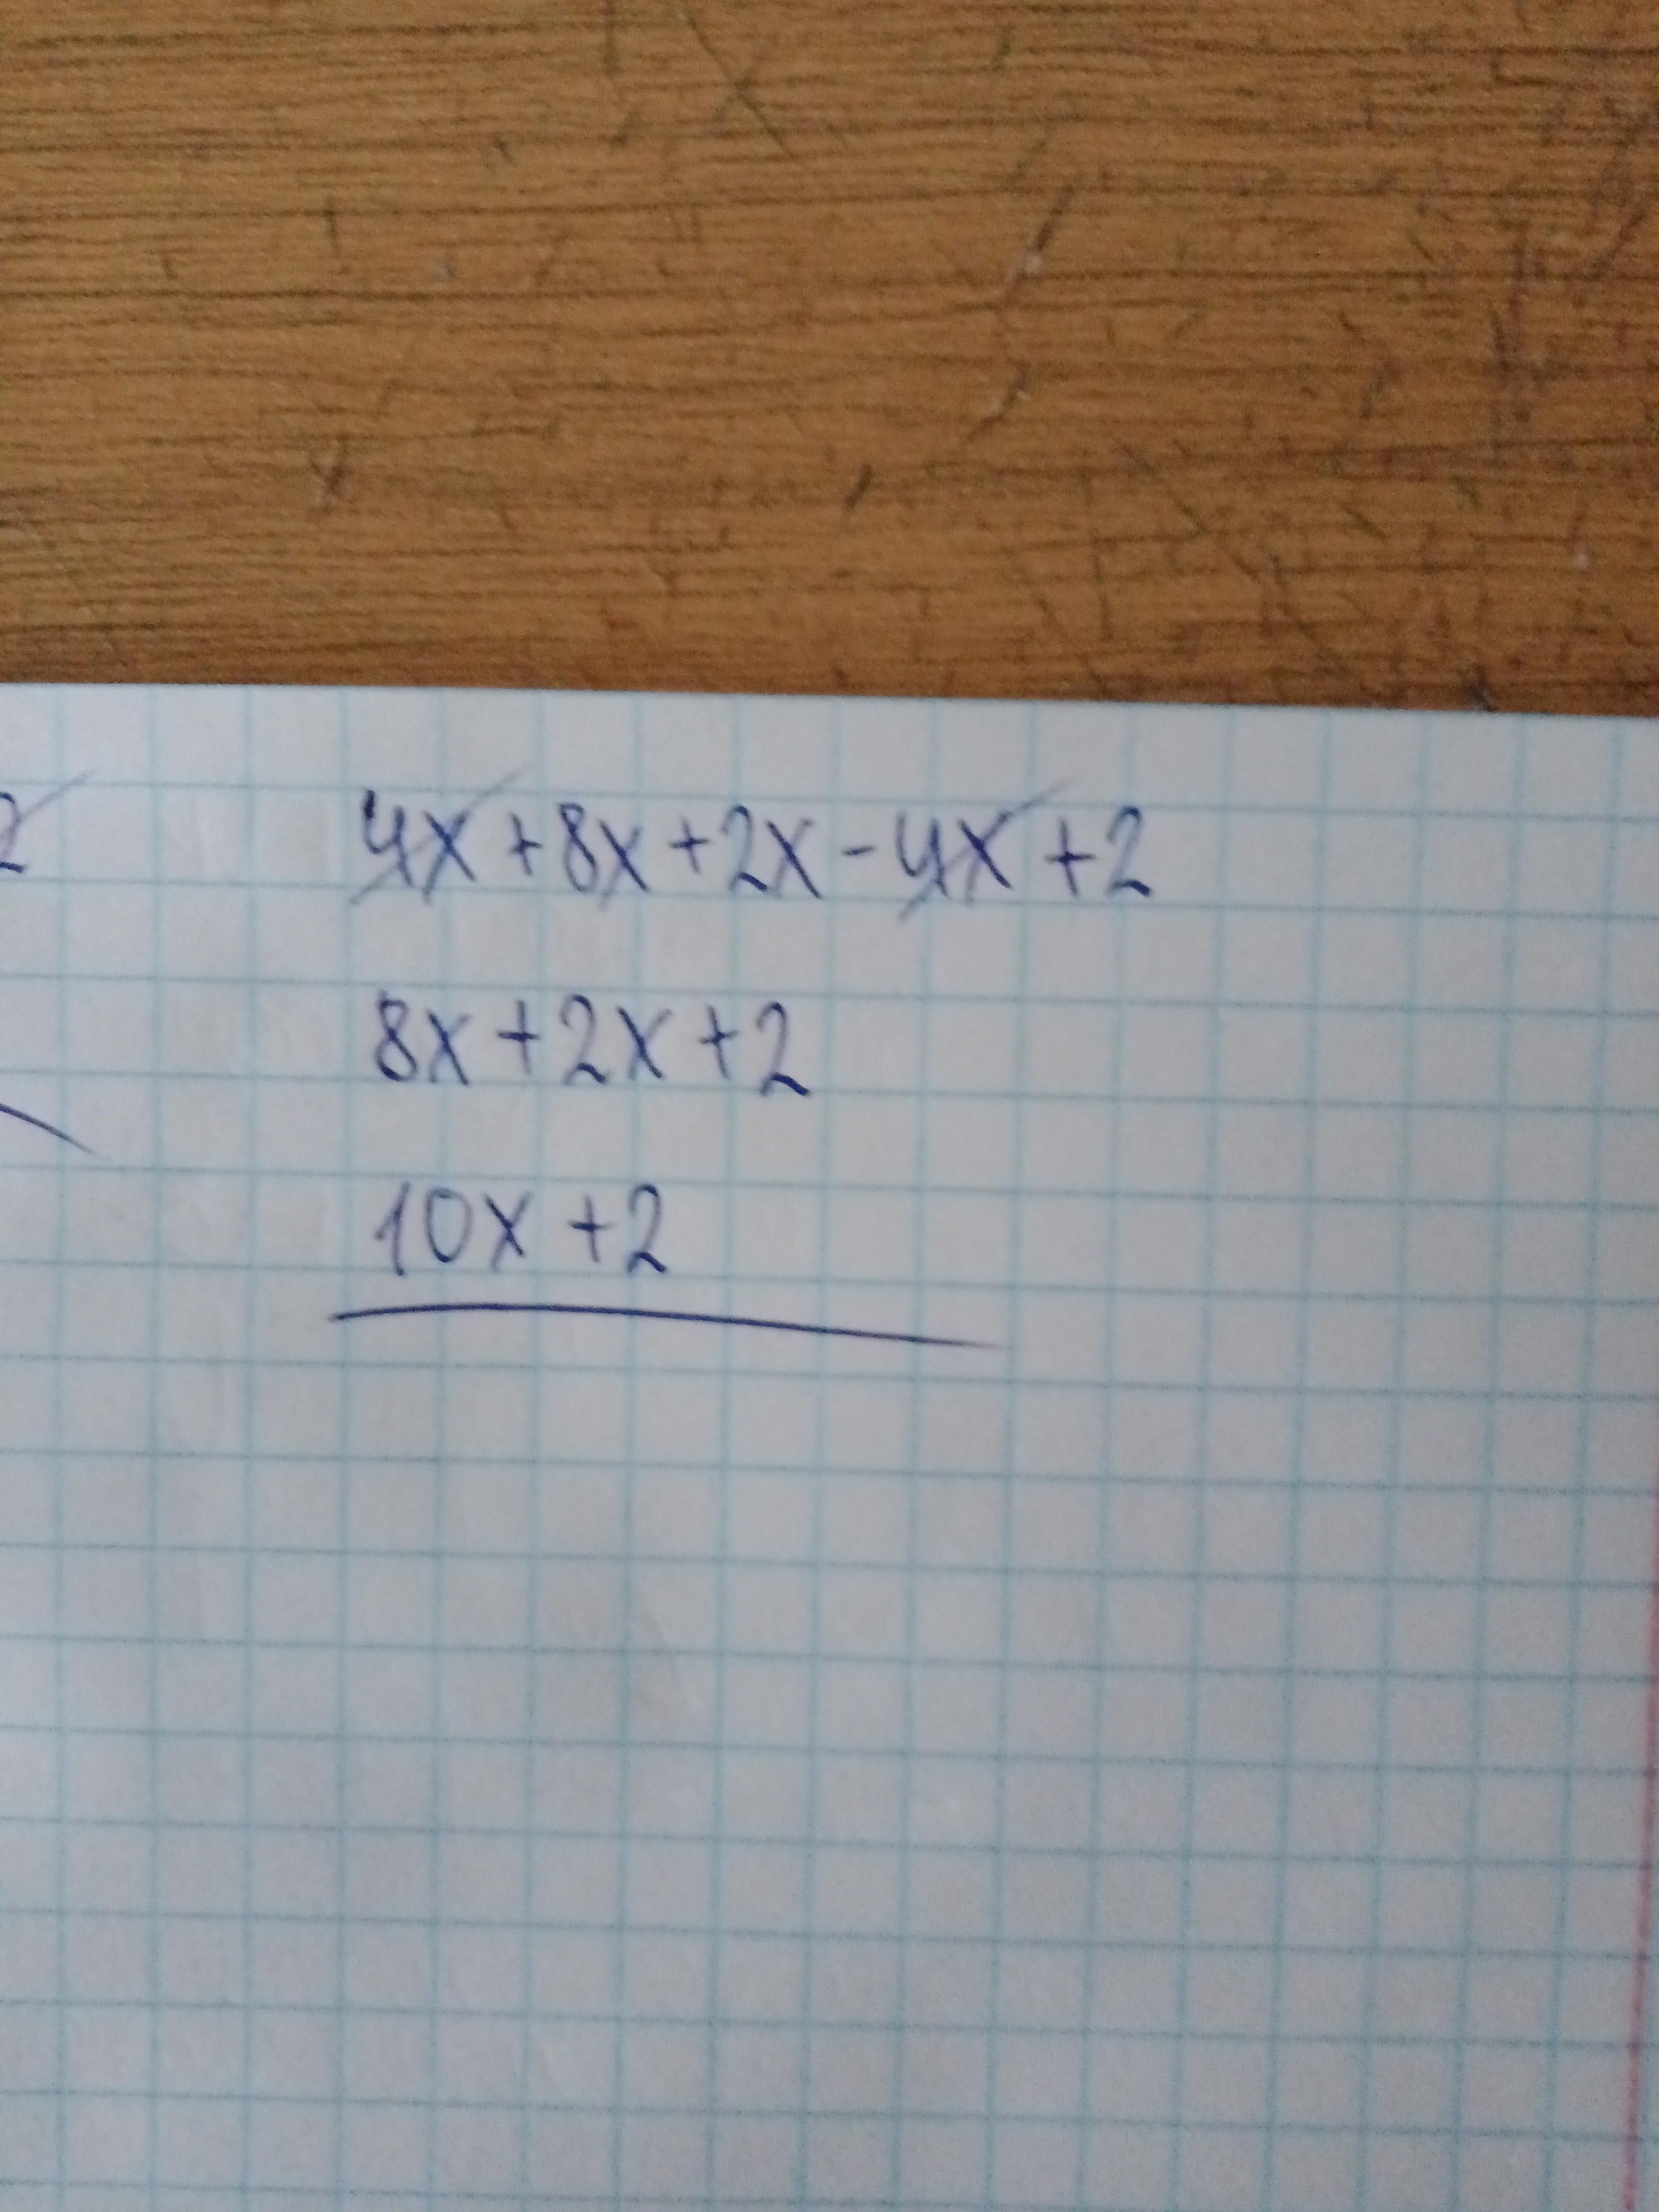 2
4x+8x+2x-4x+2
8x+2x+2
10x+2